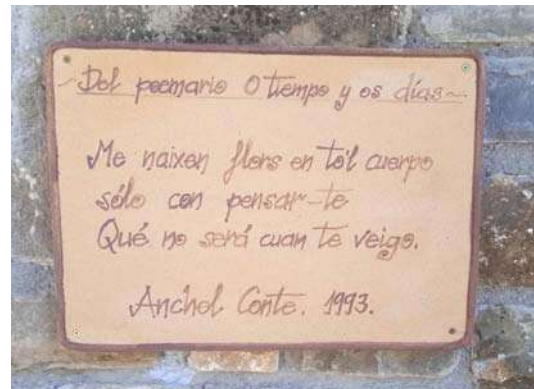 ~Del poemario O tiempo y os días~
Me naixen flors en to'l cuerpo
sólo con pensar-te
Qué no será cuan te veigo.
Anchel Conte. 1993.